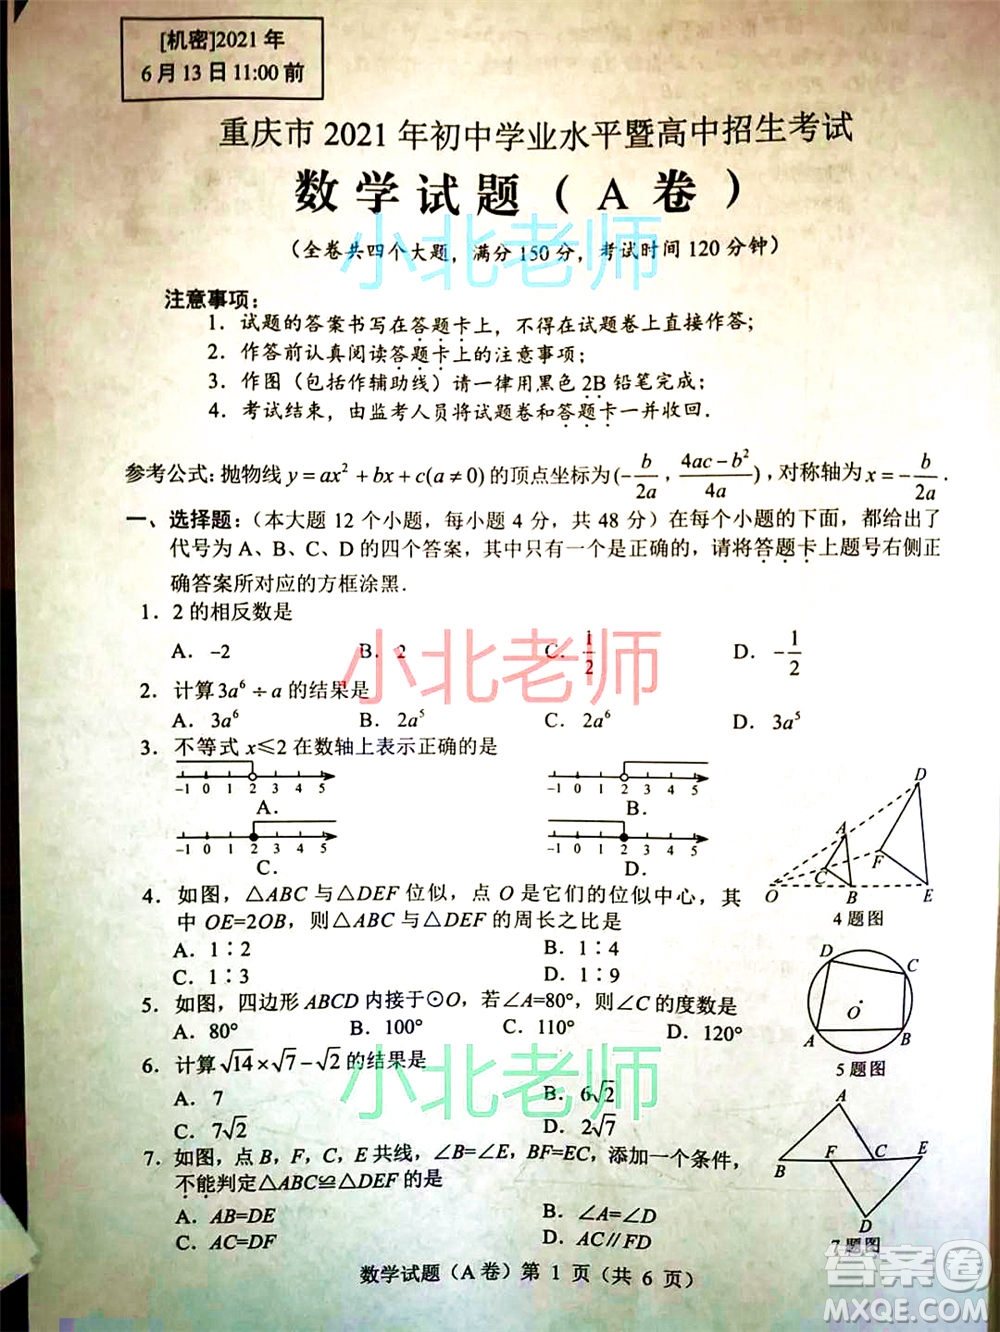 [机密]2021 年
6 月 13 日 11:00 前
重庆市 2021 年初中学业水平暨高中招生考试
数学试题（A 卷）
（全卷共四个大题，满分 150 分，考试时间 120 分钟）
小北老师
注意事项：
1．试题的答案书写在答题卡上，不得在试题卷上直接作答；
2．作答前认真阅读答题卡上的注意事项；
3．作图（包括作辅助线）请一律用黑色 2B 铅笔完成；
4．考试结束，由监考人员将试题卷和答题卡一并收回．
参考公式：抛物线 y=ax²+bx+c(a≠0) 的顶点坐标为 (-b/2a, (4ac-b²)/4a)，对称轴为 x=-b/2a．
一、选择题：（本大题 12 个小题，每小题 4 分，共 48 分）在每个小题的下面，都给出了
代号为 A、B、C、D 的四个答案，其中只有一个是正确的，请将答题卡上题号右侧正
确答案所对应的方框涂黑．
1．2 的相反数是
A．-2 B．2 C．1/2 D．-1/2
小北老师
2．计算 3a⁶÷a 的结果是
A．3a⁶ B．2a⁵ C．2a⁶ D．3a⁵
3．不等式 x≤2 在数轴上表示正确的是
-1 0 1 2 3 4 5 -1 0 1 2 3 4 5
A． B．
-1 0 1 2 3 4 5 -1 0 1 2 3 4 5
C． D．
D
A
F
C
O B E
4 题图
4．如图，△ABC 与△DEF 位似，点 O 是它们的位似中心，其
中 OE=2OB，则△ABC 与△DEF 的周长之比是
A．1∶2 B．1∶4
C．1∶3 D．1∶9
D C
O
A B
5 题图
5．如图，四边形 ABCD 内接于⊙O，若∠A=80°，则∠C 的度数是
A．80° B．100° C．110° D．120°
6．计算 √14×√7-√2 的结果是
A．7 B．6√2
C．7√2 D．2√7
小北老师
A
B F C E
D
7 题图
7．如图，点 B，F，C，E 共线，∠B=∠E，BF=EC，添加一个条件，
不能判定△ABC≌△DEF 的是
A．AB=DE B．∠A=∠D
C．AC=DF D．AC∥FD
数学试题（A 卷）第 1 页（共 6 页）
答案圈
MXQE.COM